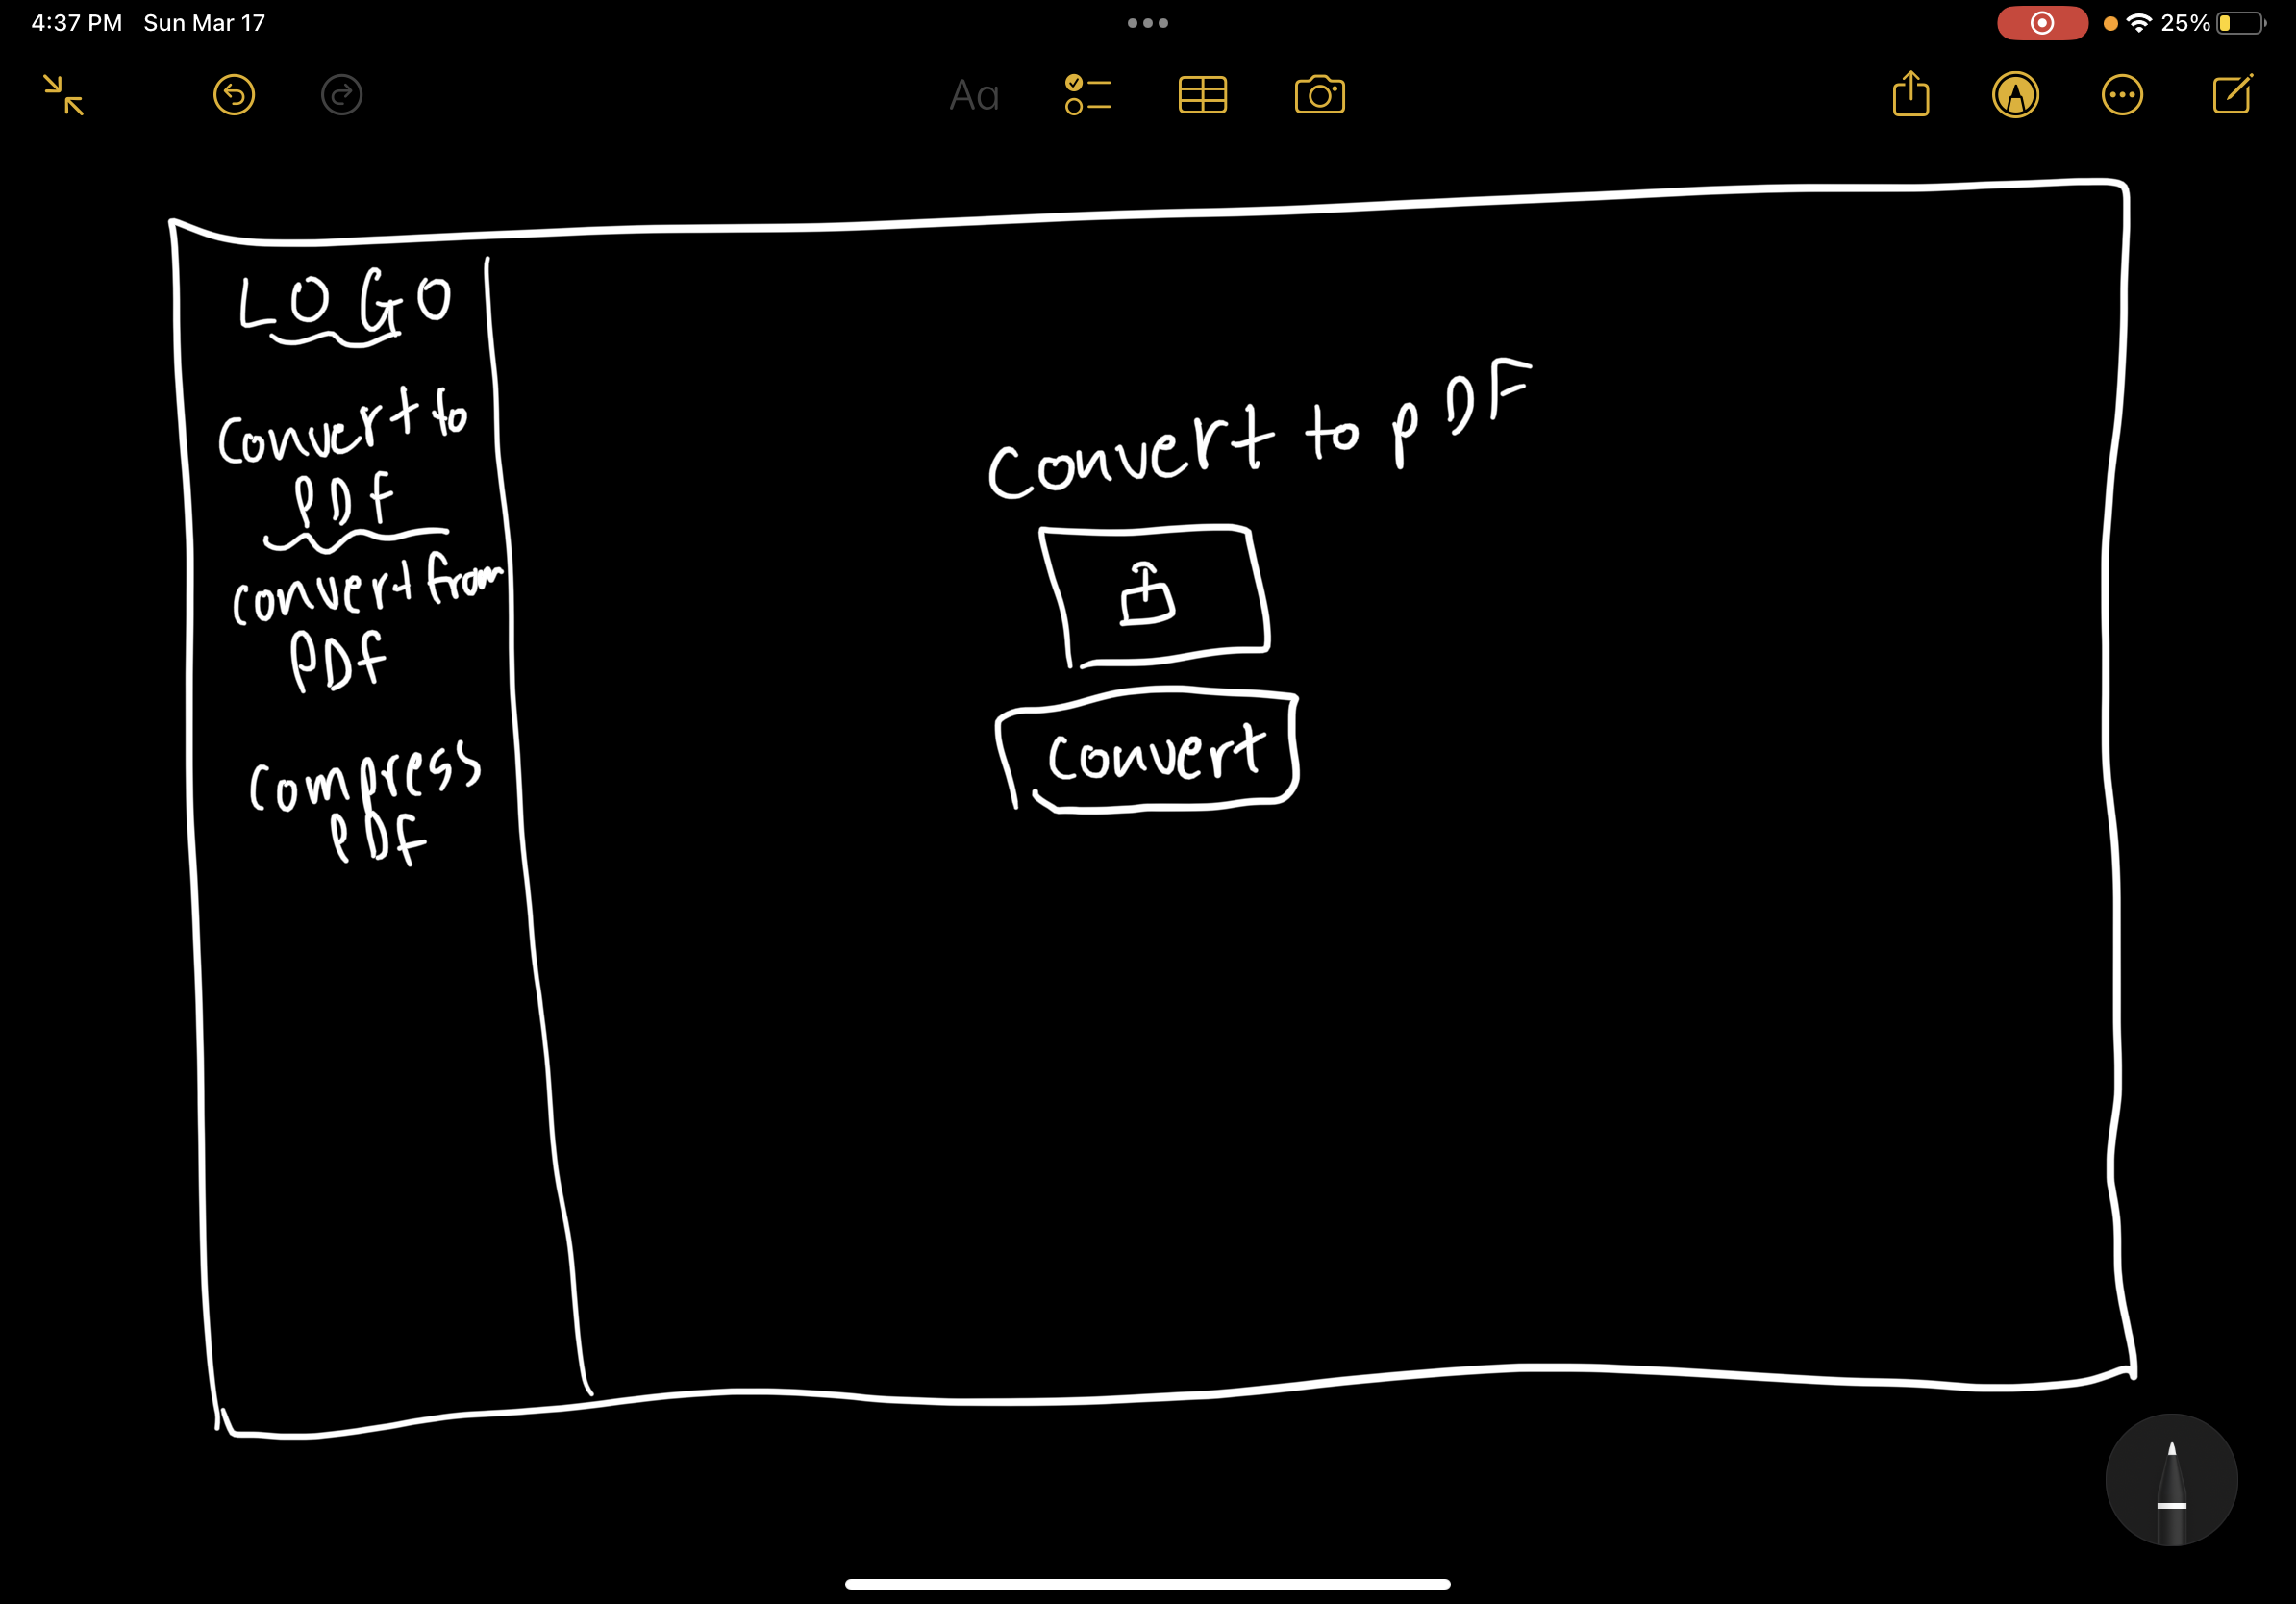 4:37 PM Sun Mar 17
25%
Aa
LOGO
Convert to
PDf
convert from
PDf
Compress
PDf
Convert to pDF
Convert